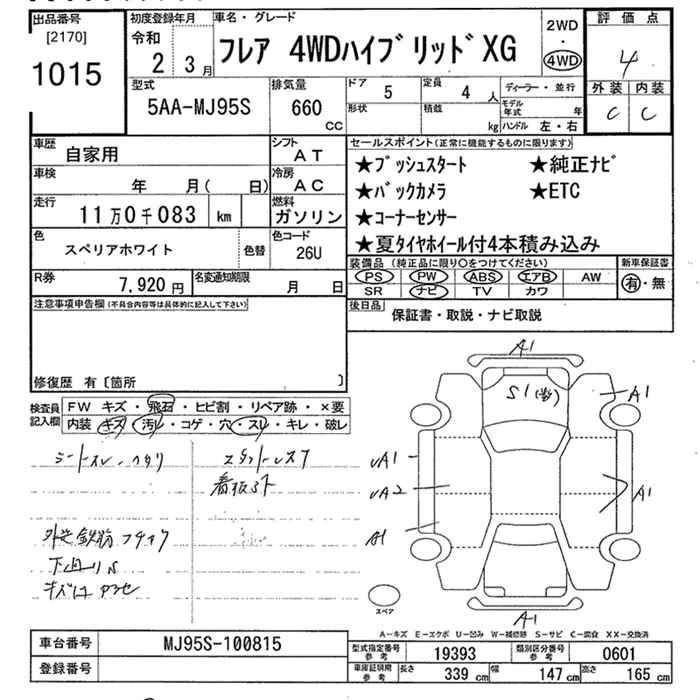 出品番号
[2170]
1015
初度登録年月
令和
2 3月
車名・グレード
フレア 4WDハイブリッドXG
2WD
・
4WD
評価点
4
外装 内装
C C
型式
5AA-MJ95S
排気量
660
CC
ドア
5
定員
4 人
形状
積載
kg
ディーラー・並行
モデル年式 年
ハンドル 左・右
車歴
自家用
シフト
AT
車検
年 月( 日)
冷房
AC
走行
11万0千083 km
燃料
ガソリン
色
スペリアホワイト
色替
色コード
26U
R券
7,920円
名変通知期限
月 日
セールスポイント(正常に機能するものに限ります)
★プッシュスタート ★純正ナビ
★バックカメラ ★ETC
★コーナーセンサー
★夏タイヤホイール付4本積み込み
装備品(純正品に限り○をつけてください)
PS PW ABS エアB AW
SR ナビ TV カワ
新車保証書
有・無
後日品
保証書・取説・ナビ取説
注意事項申告欄(不具合内容等は具体的に記入して下さい)
修復歴 有〔箇所 〕
検査員記入欄
FW キズ・飛石・ヒビ割・リペア跡・×要
内装 キズ・汚レ・コゲ・穴・スレ・キレ・破レ
シートスレ・ヘタリ
スカットレスア
看板跡
下回りS
A1
S1
A1
A1
A2
A1
A1
A1
スペア
A-キズ E-エクボ U-凹み W-補修跡 S-サビ C-腐食 XX-交換済
車台番号
MJ95S-100815
登録番号
型式指定番号 参考
19393
類別区分番号 参考
0601
車庫証明用 参考
長さ 339 cm 幅 147 cm 高さ 165 cm